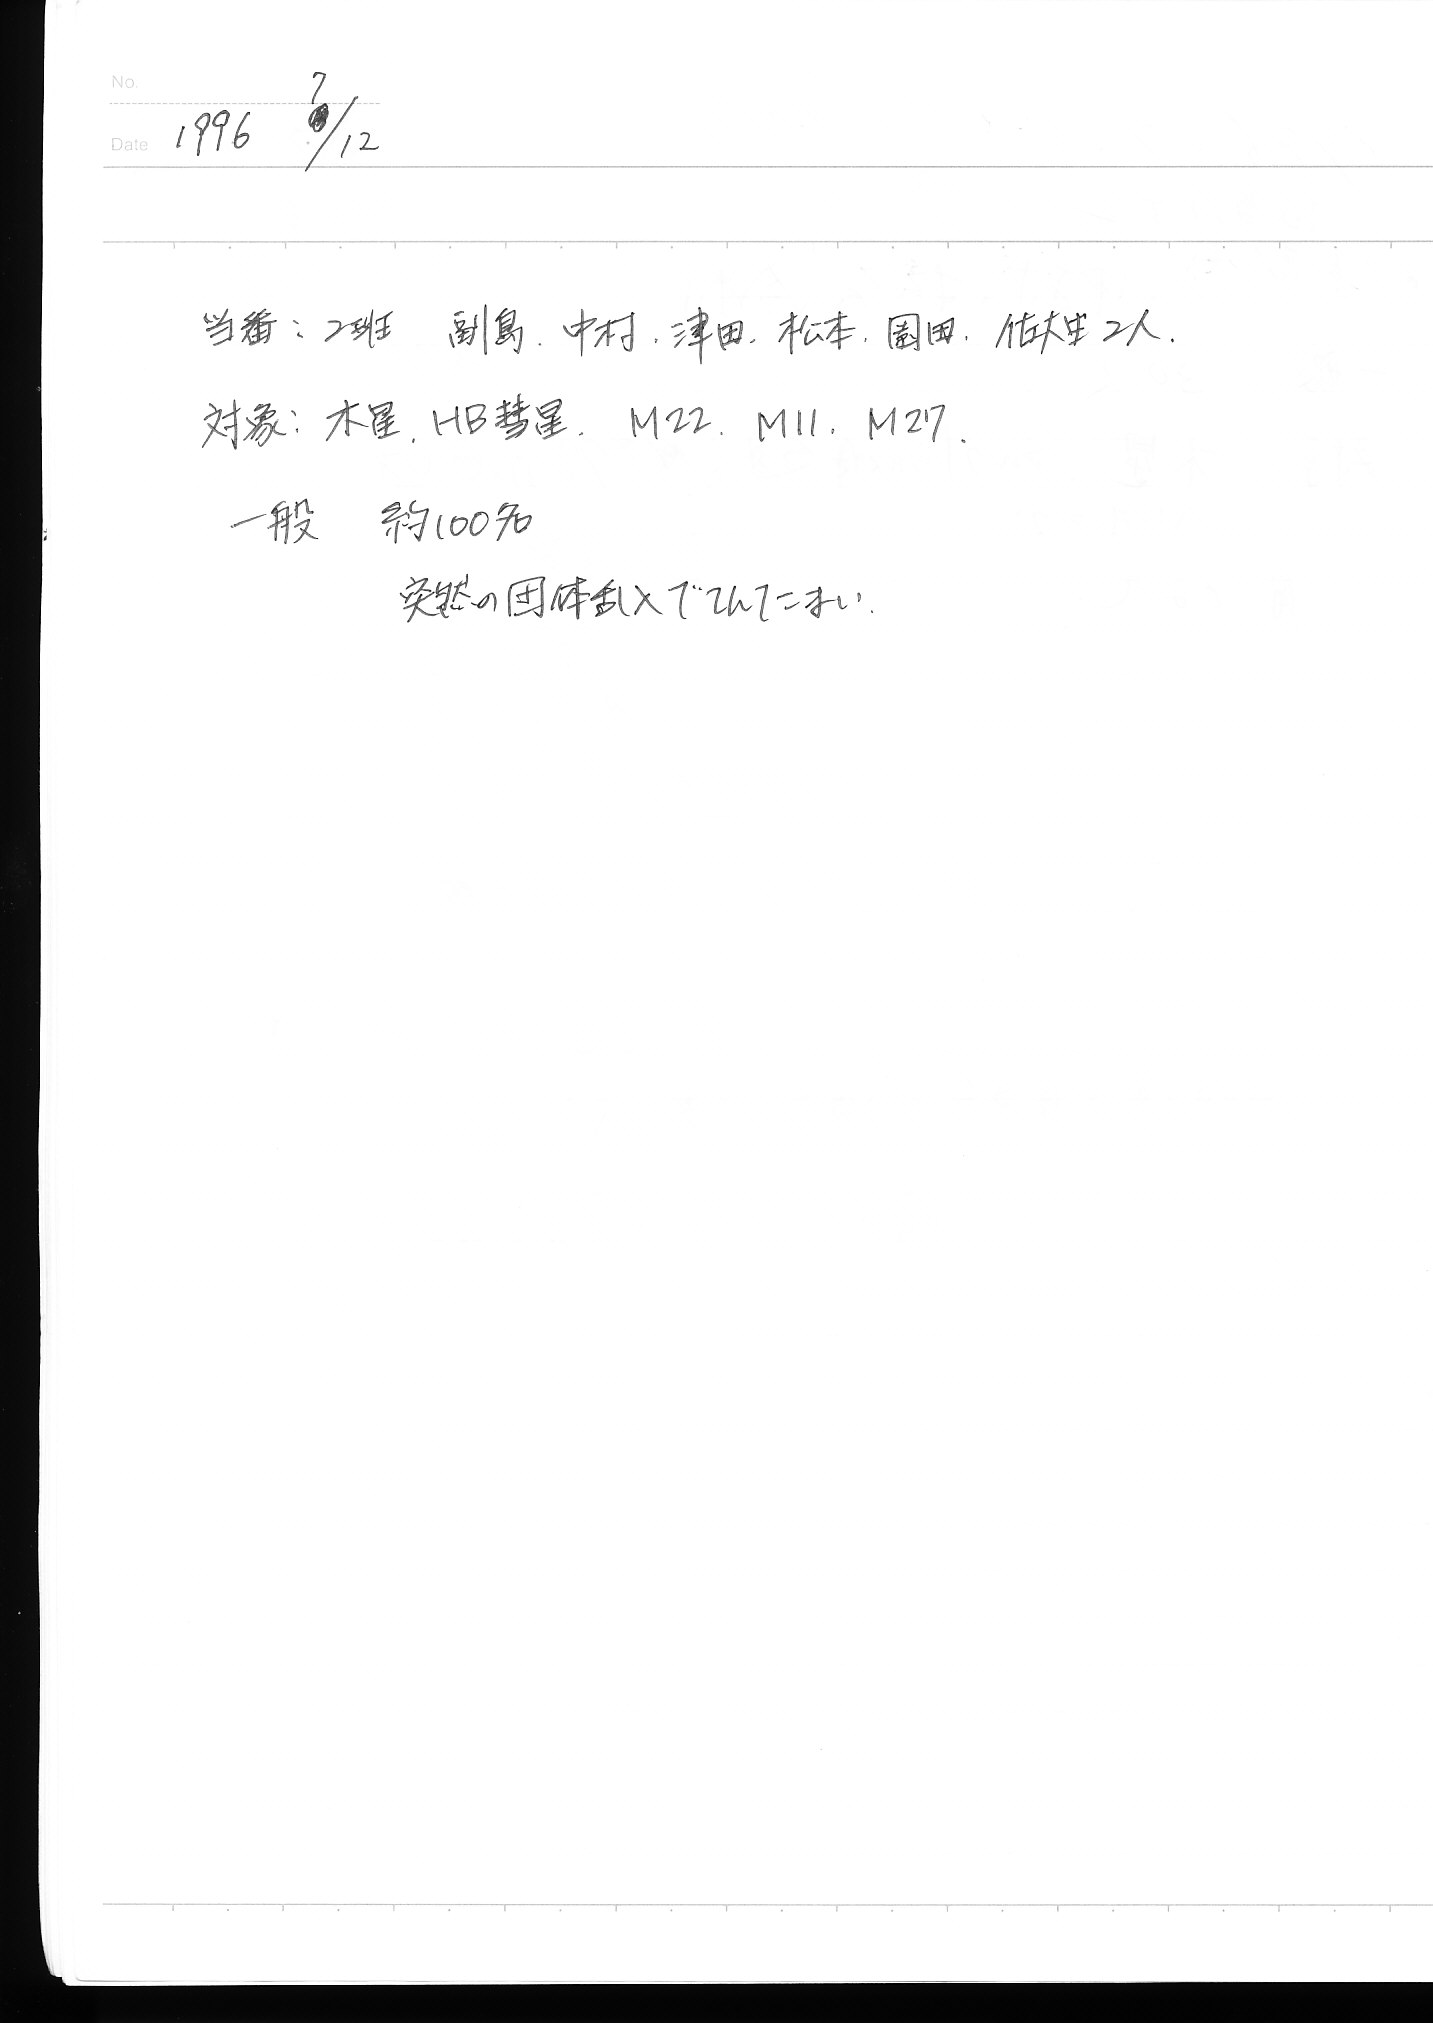 No.
Date 1996 7/12
当番：2班 副島．中村．津田．松本．園田．佐大生2人．
対象：木星．HB彗星．M22．M11．M27．
一般 約100名
突然の団体乱入でてんてこまい．